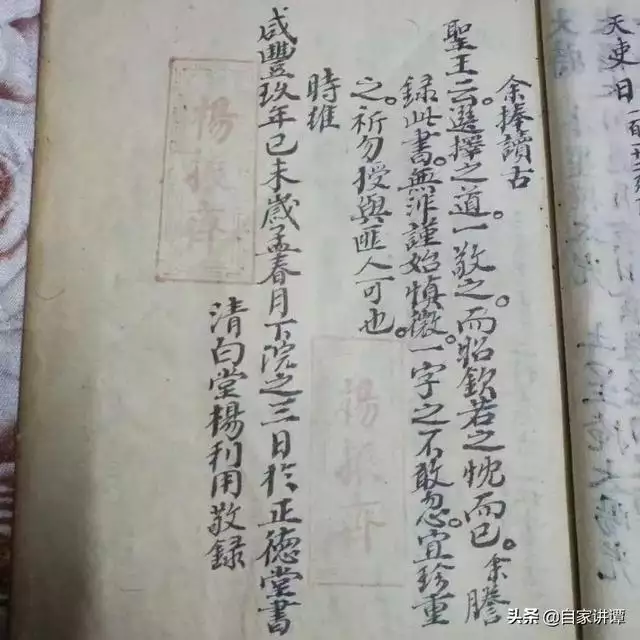 余捧讀古
聖王云。選擇之道。一敬之。而昭欽若之忱而已。余謄
録此書。無非謹始慎微。一字之不敢忽。宜珍重
之。祈勿授與匪人可也。
時維
咸豐玖年己未歲孟春月下浣之三日於正德堂書
清白堂楊利用敬録
楊振
楊振
天吏日
头条 @自家讲谭